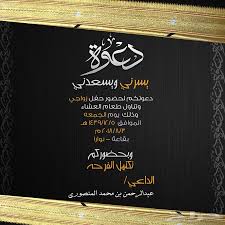 دعوة
يسرني ويسعدني
دعوتكم لحضور حفل زواجي
وتناول طعام العشاء
وذلك يوم الجمعه
الموافق ١٤٣٩/١٢/٥ هـ
٢٠١٨/١١/٣ م
بقاعة - نوارا
وبحضوركم
تكتمل الفرحه
الداعي/
عبدالرحمن بن محمد المنصوري